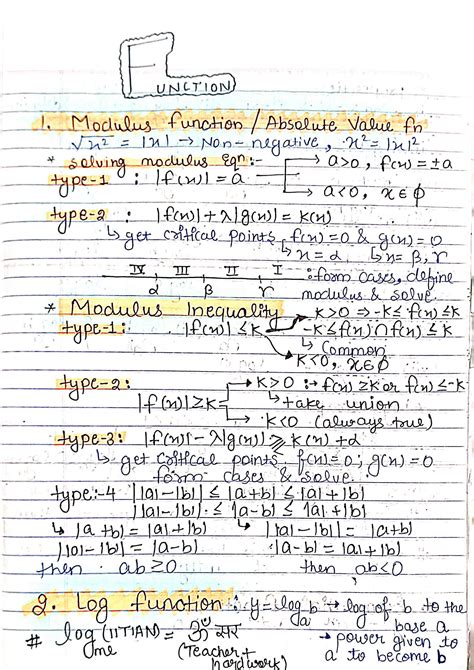 FUNCTION
1. Modulus Function / Absolute Value fn
√x² = |x| → Non-negative, x² = |x|²
* solving modulus eqn:-
→ a>0, f(x) = ±a
type-1 : |f(x)| = a
→ a<0, x∈ϕ
type-2 : |f(x)| + λ|g(x)| = k(x)
↳ get critical points f(x)=0 & g(x)=0
↳ x = α, ↳ x = β, γ
IV III II I :form cases, define
α β γ modulus & solve.
* Modulus Inequality
→ k>0 ⇒ -k≤f(x)≤k
type-1: |f(x)| ≤ k → -k≤f(x)∩f(x)≤k
↳ Common
k<0, x∈ϕ
type-2: → k>0 :→ f(x)≥k or f(x)≤-k
|f(x)|≥k ↳ take union
→ k<0 (always true)
type-3: |f(x)|-λ|g(x)| ≥ k(x)+α
↳ get critical points f(x)=0; g(x)=0
form cases & solve.
type:-4 ||a|-|b|| ≤ |a+b| ≤ |a|+|b|
||a|-|b|| ≤ |a-b| ≤ |a|+|b|
↳ |a+b| = |a|+|b| ↳ ||a|-|b|| = |a+b|
||a|-|b|| = |a-b| |a-b| = |a|+|b|
then ab≥0 then ab<0
2. Log function : y=log_a b → log of b to the
base a
# log_me (IITIAN) = ॐ सर → power given to
(Teacher + a to become b
hardwork)